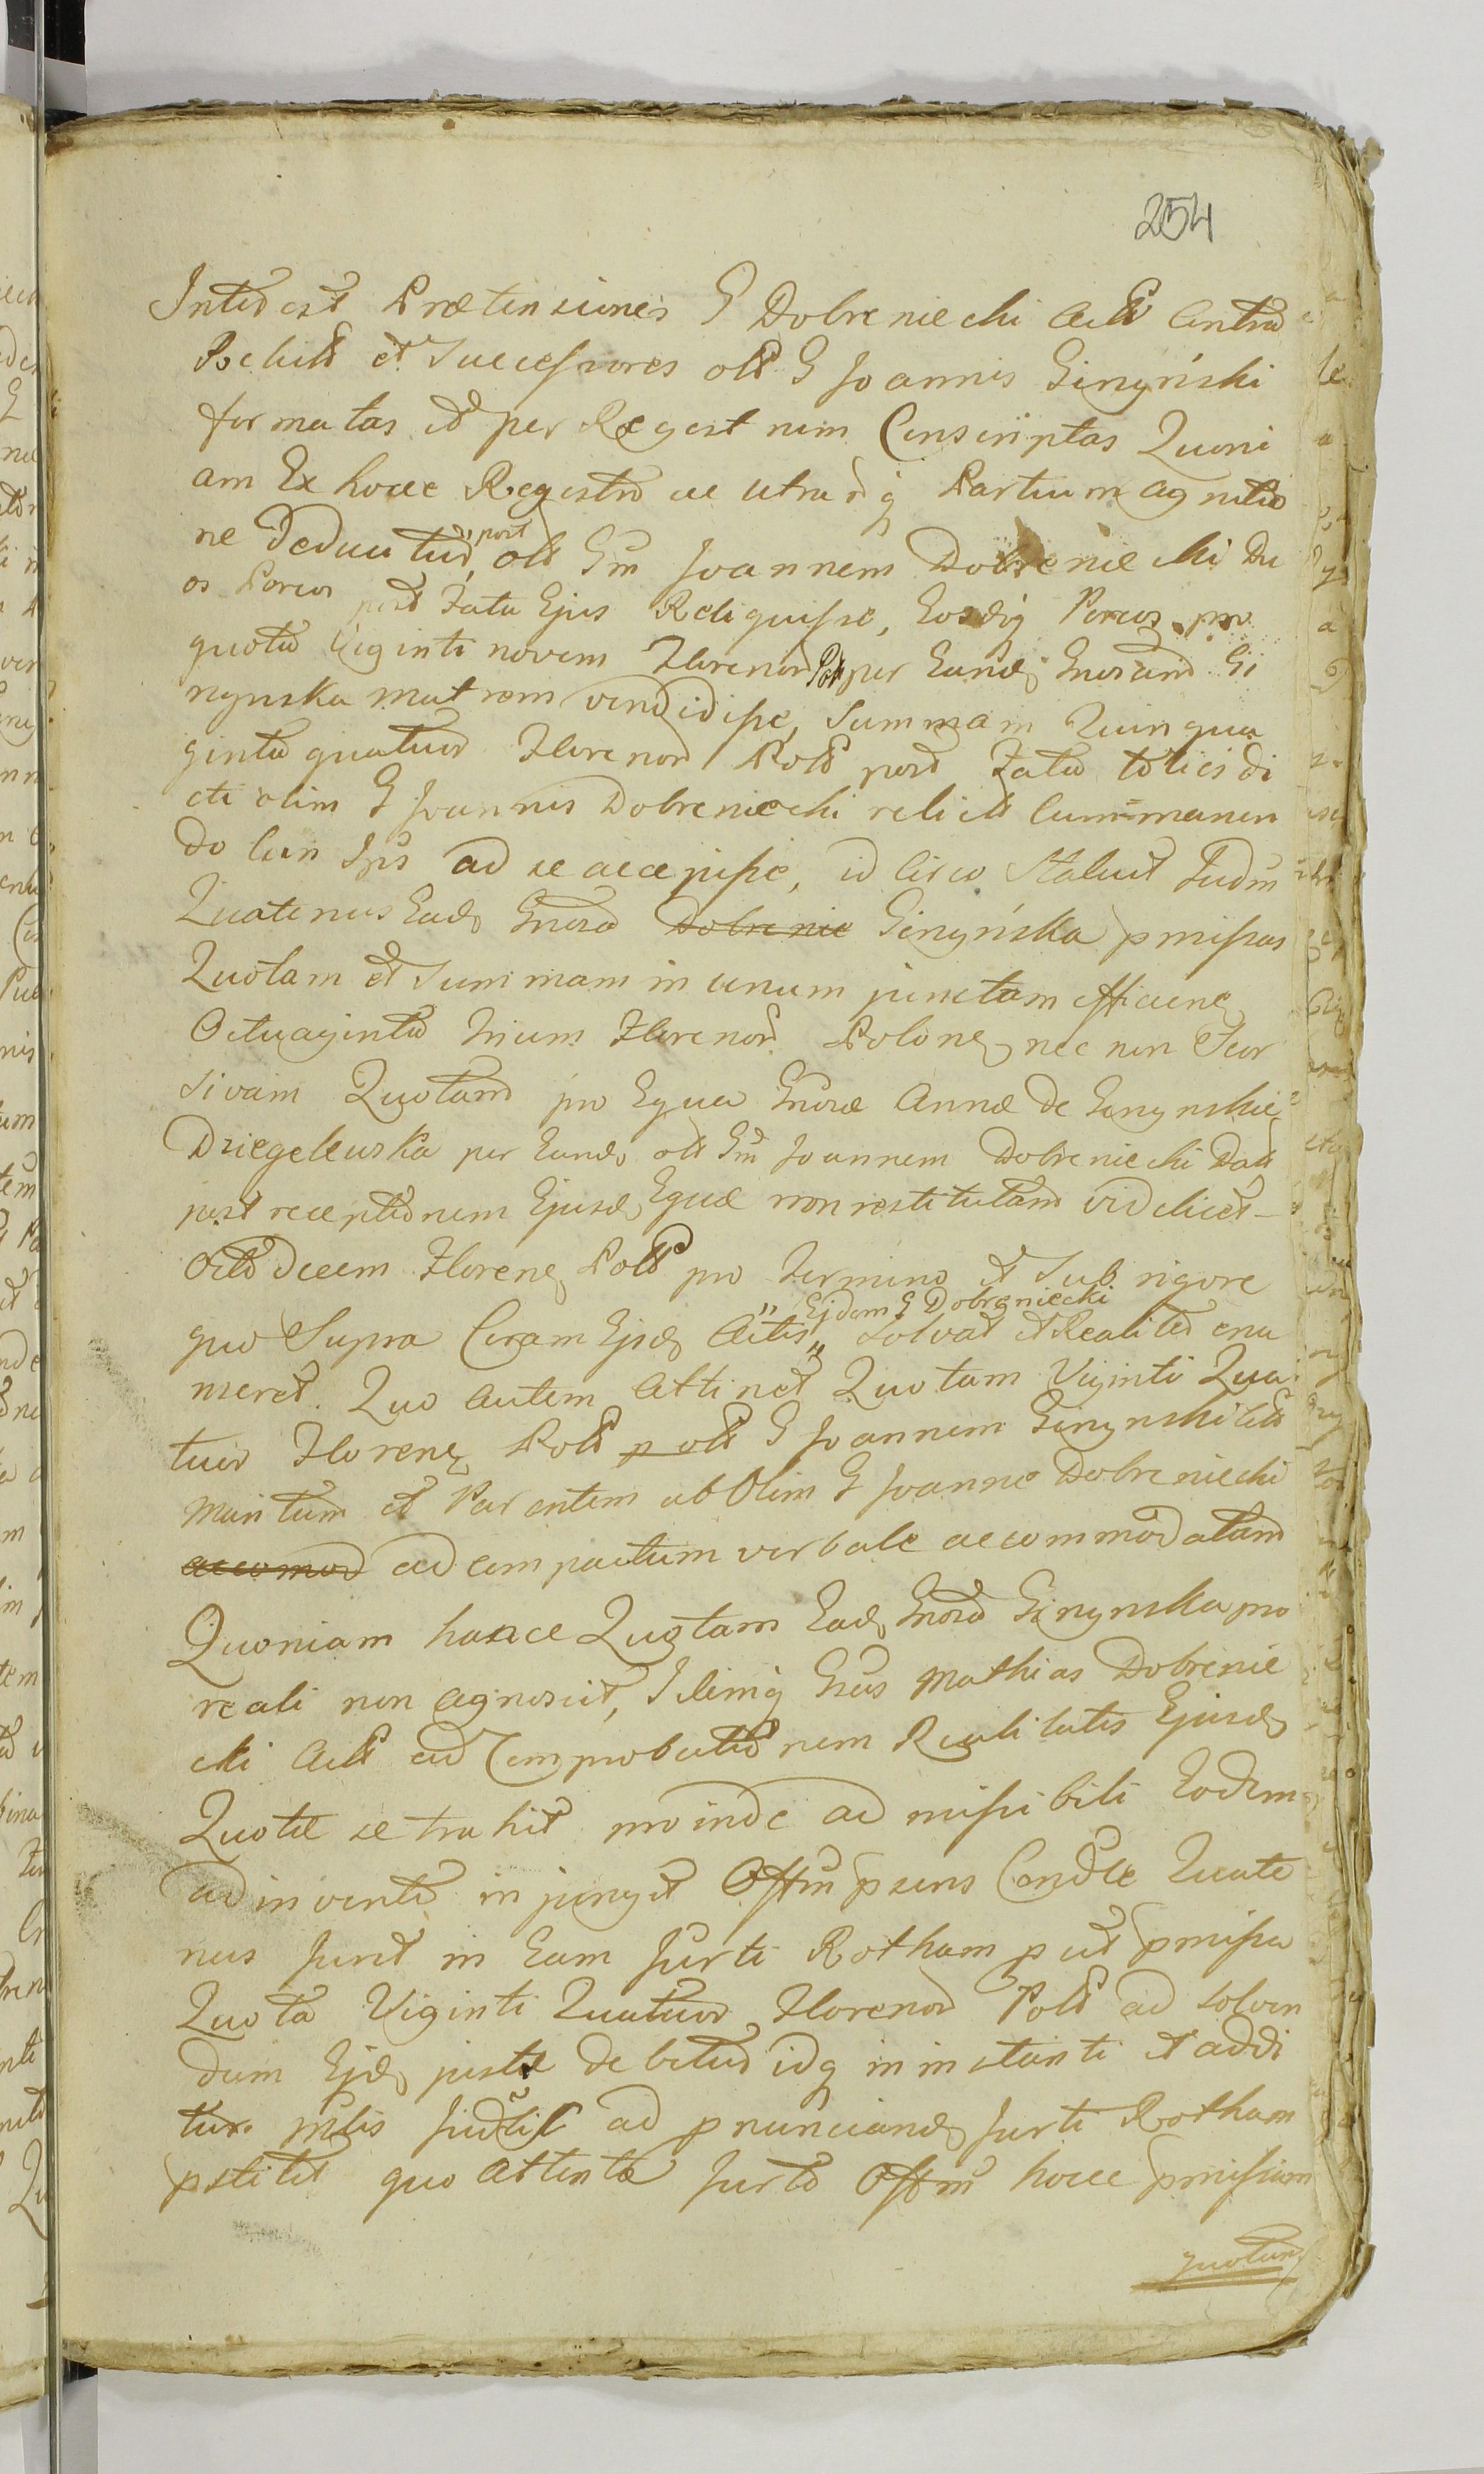 254
Inter est Prætensiones G Dobreniecki Actt Contra
et Successores olt G Joannis Ginyński
formatas et per Regestrum Conscriptas Quoni
am Ex hocce Regestro ac utrarq Partium agnitio
ne Deducitur, post olt Gm Joannem Dobreniecki Du
os Porcos post Fata Ejus Reliquisse, Eosdq Porcos pro
quota Viginti novem Florenor Polt per Eand Gnosam Gi
nynska matrem vendidisse, Summam Quinqua
ginta quatuor Florenor Polt post Fata toties di
cti olim G Joannis Dobreniecki relictt Cum manen
do Cum Ips ad se accepisse, id circo Staluit Judm
Quatenus Ead Gnosa Dobrenie Ginyńska pmissas
Quotam et Summam in unum junctam efficien
Octuaginta trium Florenor Polon nec non Seor
sivam Quotam pro Equa Gnosæ Annæ de Ginynskie
Dziegelewska per Eund olt Gm Joannem Dobreniecki Datt
post receptionem Ejusd Equæ non restitutam videlicet
Octo decem Floren Polt pro termino et Sub rigore
quo Supra Coram Ejsd Actis „ Ejdem G Dobreniecki „ Solvat et Realiter enu
meret. Quo autem Attinet Quotam Viginti Qua
tuor Floren Polt p olt G Joannem Ginynski
maritum et Parentem ab Olim G Joanne Dobreniecki
accomod ad compactum verbale accommodatam
Quoniam hancce Quotam Ead Gnosa Ginynska pro
reali non agnoscit, Gsus Mathias Dobrenie
cki Actt ad Comprobationem Realitatis Ejusd
Quotæ se trahit proinde admissibili Eodem
ad inventa injungit Offm psens Condle Quate
nus Juret in Eam Jurti Rotham put pmissa
Quota Viginti Quatuor Florenor Polt ad solven
dum Ejd juste debetur idq in instanti et addi
tur ad pnunciand Jurti Rotham
pstitit quo Attento Jurto Offm hocce pmissam
quotam